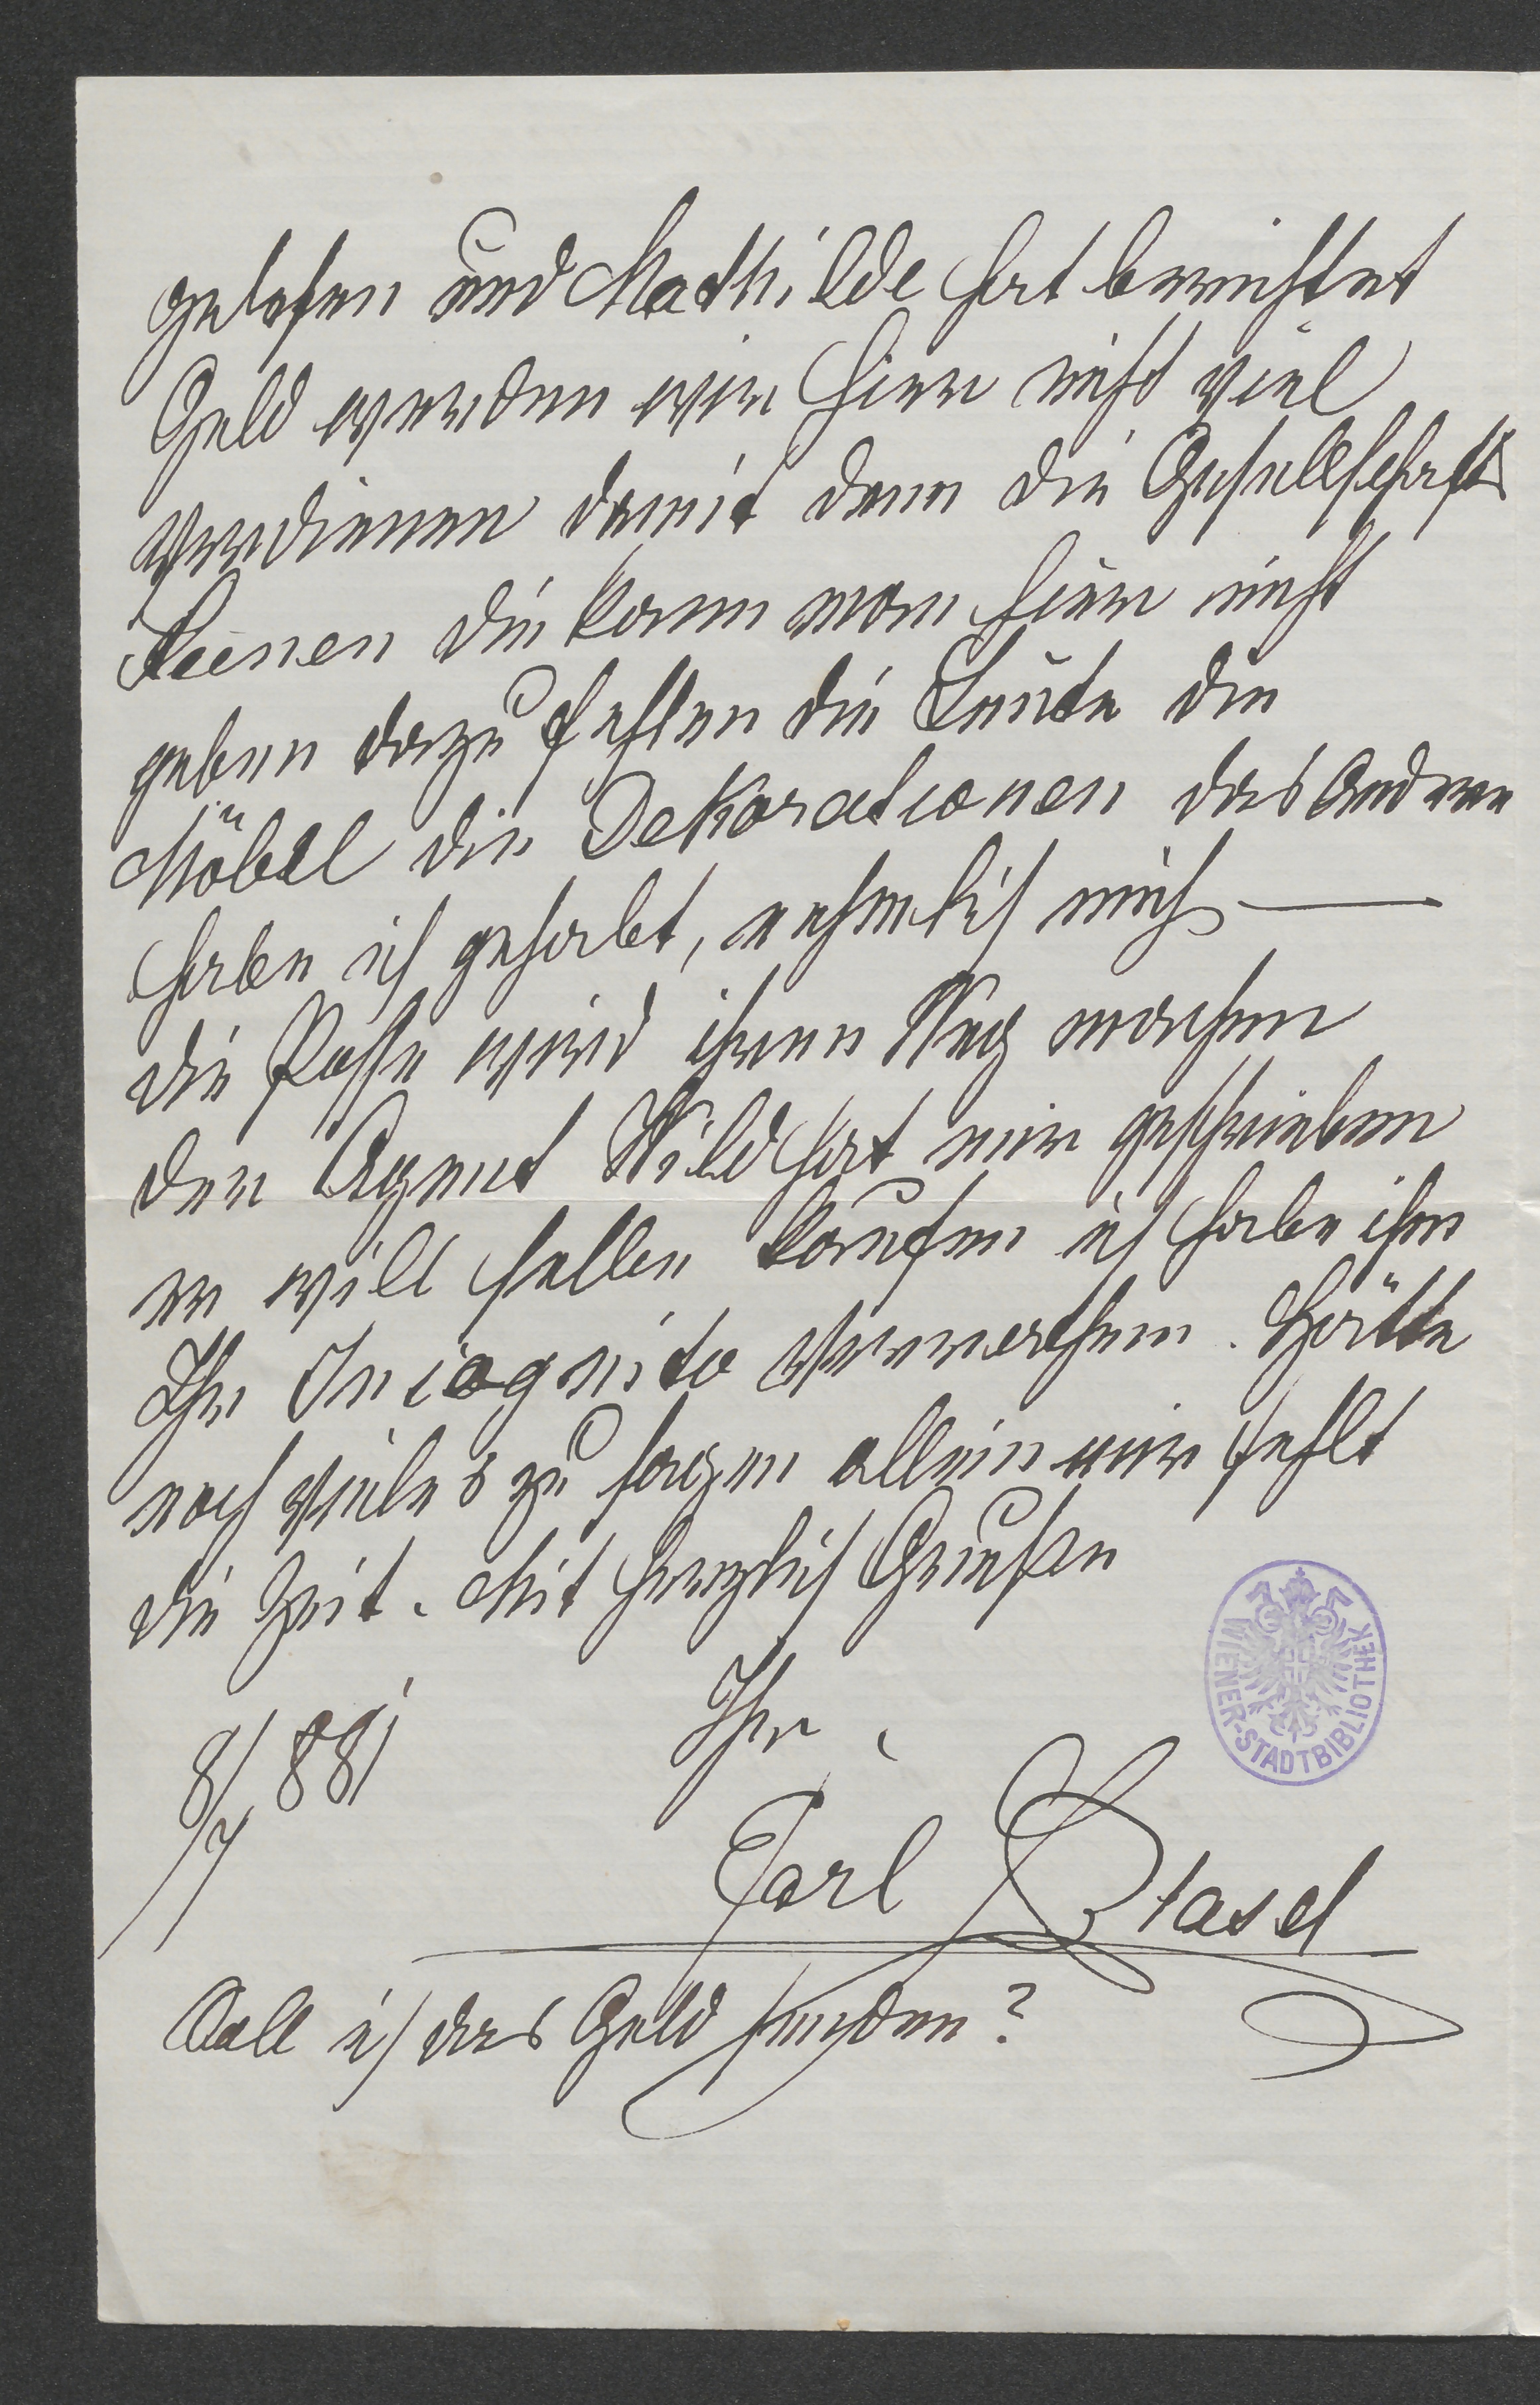 gelesen und Mathilde hat berichtet
Geld werden wir hier nicht viel
verdienen damit denn die Gesellschafts
Scenen die kann man hier nicht
geben dazu fehlen die Leute die
Möbel die Dekorationen das Andere
habe ich gehabt, nehmlich mich —
die Posse wird ihren Weg machen
der Agent Wild hat mir geschrieben
er will selbe kaufen ich habe ihm
Ihr Incognito verrathen. Hätte
noch vieles zu sagen allein mir fehlt
die Zeit. Mit herzlich Grüßen
Ihr
8/7 881
Carl Blasel
Soll ich das Geld senden?
WIENER-STADTBIBLIOTHEK